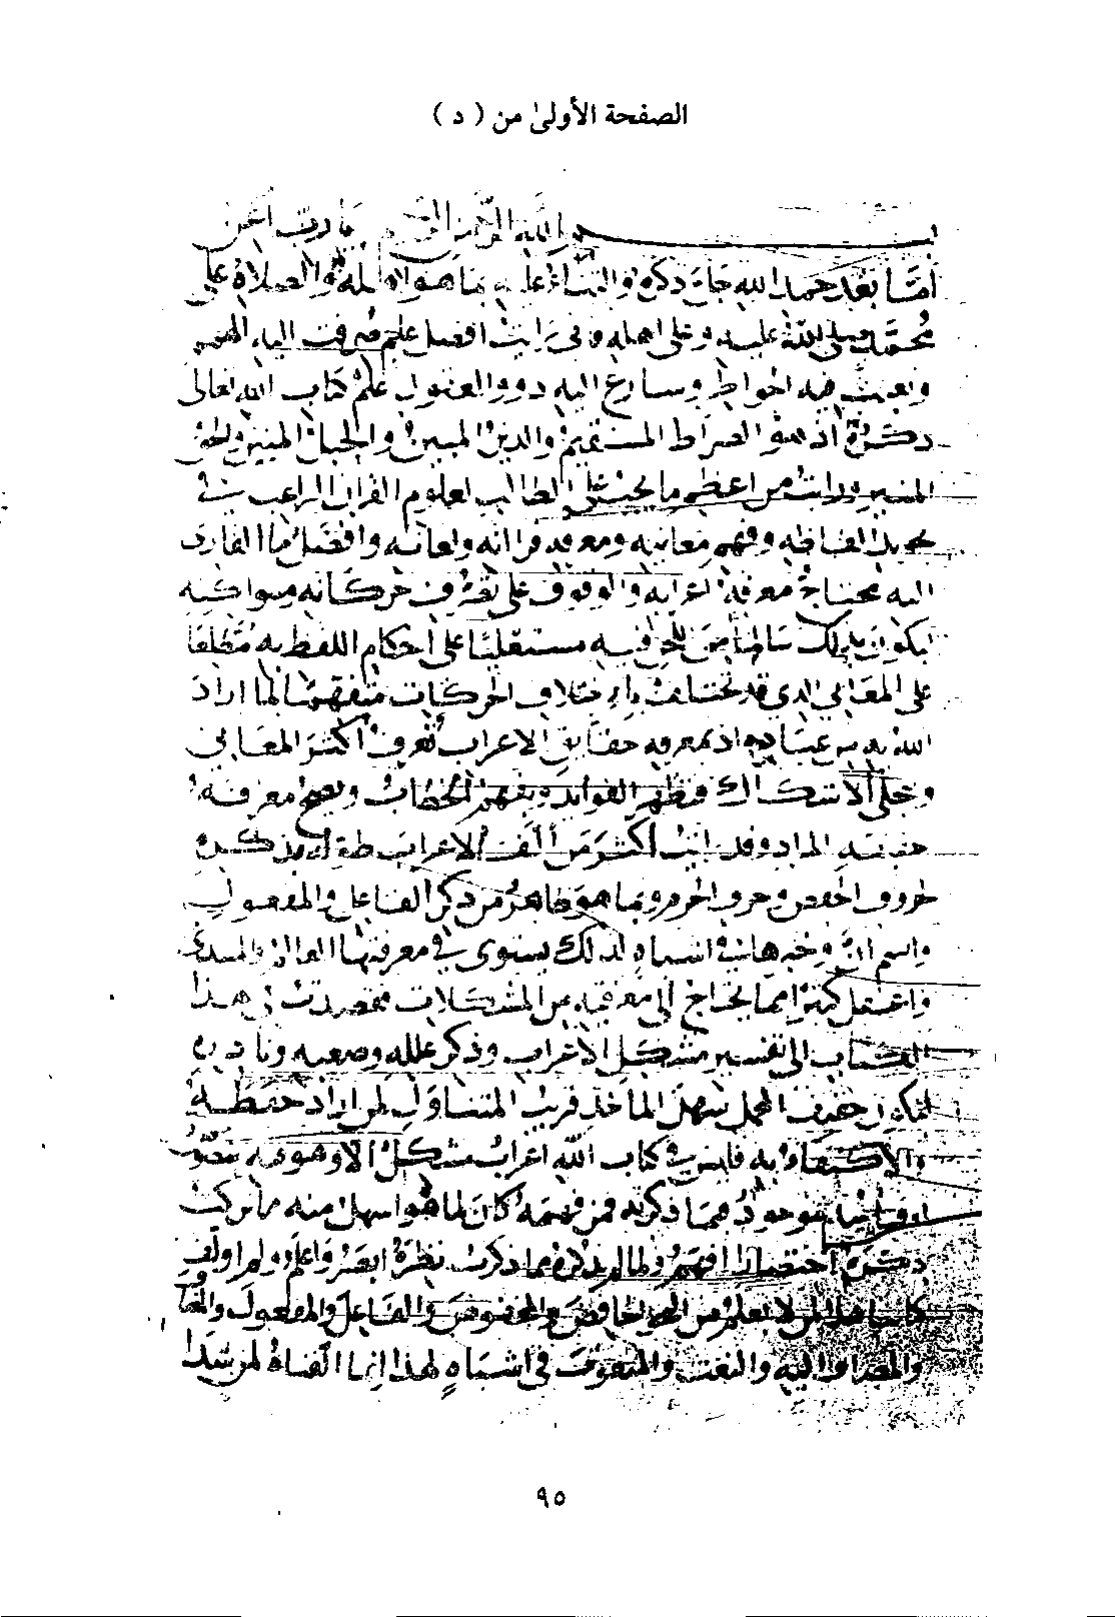 الصفحة الأولىٰ من ( د )
بسم الله الرحمن الرحيم يا رب اعن
أمّا بعد حمد الله جل ذكره والثناء عليه بما هو اهله والصلاة على
محمد صلى الله عليه وعلى اهله فانى رايت افضل علم صرفت اليه الهمم
وتعبت فيه الخواطر وسارع اليه ذوو العقول علم كتاب الله تعالى
ذكره اذ هو الصراط المستقيم والدين المبين والحبل المتين والحق
المنير ورايت من اعظم ما يجب على الطالب لعلوم القران الراغب في
تجويد الفاظه وفهم معانيه ومعرفة قراآته ولغاته وافضل ما القارى
اليه محتاج معرفة اعرابه والوقوف على تصرف حركاته وسواكنه
ليكون بذلك سالما من اللحن فيه مستقلا على احكام اللفظ به مطلعا
على المعانى الذي قد تختلف باختلاف الحركات متفهما لما اراد
الله به من عباده اذ بمعرفة حقايق الاعراب تعرف أكثر المعانى
وتجلى الاشكال فتظهر الفوايد ويفهم الخطاب ويصح معرفة
حقيقة المراد وقد رايت اكثر من ألف الاعراب طوله بذكره
لحروف الخفض وحروف الجزم وبما هو ظاهر من ذكر الفاعل والمفعول
واسم ان وخبرها في اشباه لذلك يستوى في معرفتها العالم والمبتدئ
واغفل كثيرا مما يحتاج الى معرفته من المشكلات فقصدت في هذا
الكتاب الى تفسير مشكل الاعراب وذكر علله وصعبه ونادره
ليكون خفيف المحمل سهل الماخذ قريب المتناول لمن اراد حفظه
والاكتفاء به فليس في كتاب الله اعراب مشكل الا وهو فيه منصوص
او قياسه موجود فيما ذكرته فمن فهمه كان لما هو اسهل منه مما تركت
ذكره اختصارا افهم ولما لم نذكره مما ذكرت نظيره ابصر واعلم ولم اولف
كتابنا هذا لمن لا يعلم من النحو الا الخافض والمخفوض والفاعل والمفعول والمضاف
والمضاف اليه والنعت والمنعوت في اشباه لهذا انما الفناه لمن شدا
٩٥